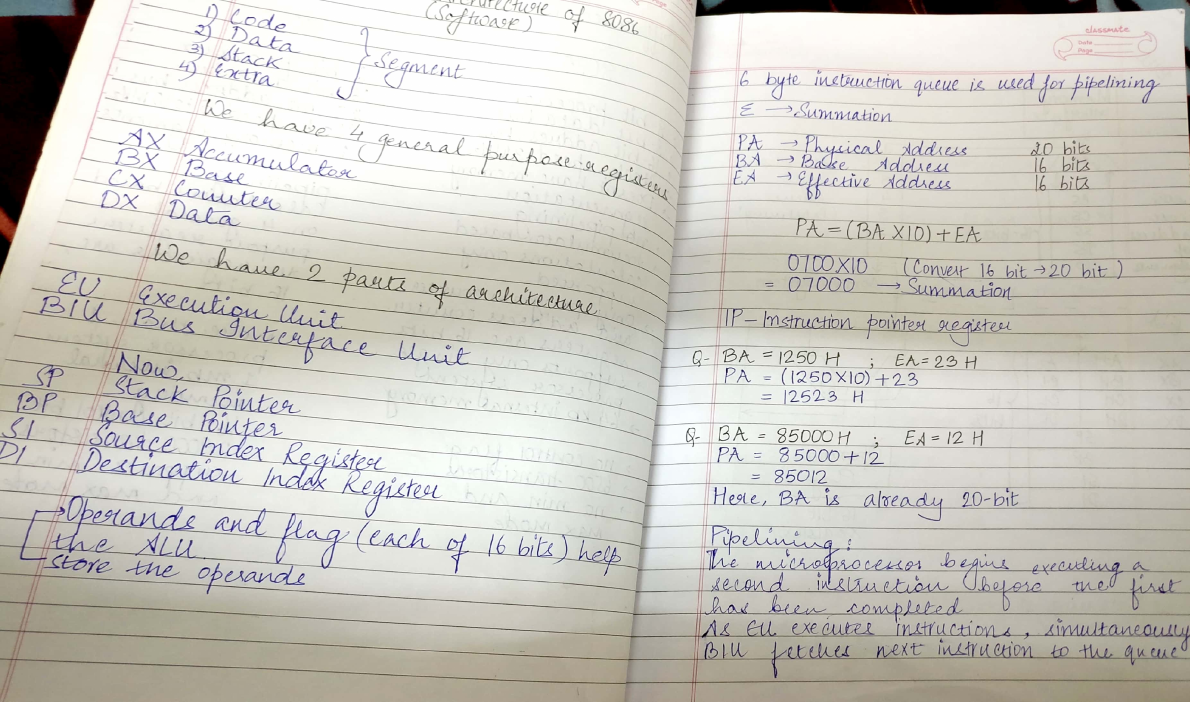 of 8086
(Software)
1) Code
2) Data
3) Stack
4) Extra
Segment
We have 4 general purpose registers
AX Accumulator
BX Base
CX Counter
DX Data
We have 2 parts of architecture
EU Execution Unit
BIU Bus Interface Unit
Now,
SP Stack Pointer
BP Base Pointer
SI Source Index Register
DI Destination Index Register
→Operands and flag (each of 16 bits) help
the ALU
store the operands
classmate
Date
Page
6 byte instruction queue is used for pipelining
Σ → Summation
PA → Physical Address 20 bits
BA → Base Address 16 bits
EA → Effective Address 16 bits
PA = (BA X10) + EA
0700X10 (Convert 16 bit → 20 bit)
= 07000 → Summation
IP - Instruction pointer register
Q- BA = 1250 H ; EA = 23 H
PA = (1250X10) + 23
= 12523 H
Q- BA = 85000 H ; EA = 12 H
PA = 85000 + 12
= 85012
Here, BA is already 20-bit
Pipelining:
The microprocessor begins executing a
second instruction before the first
has been completed
As EU executes instructions, simultaneously
BIU fetches next instruction to the queue